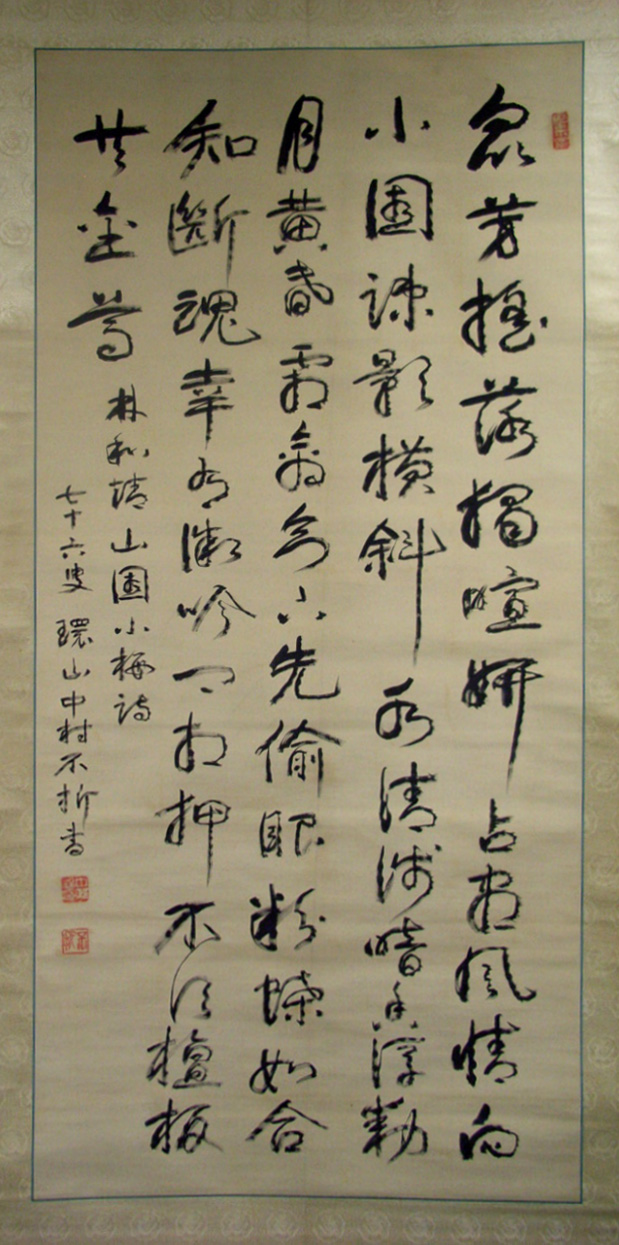 衆芳搖落獨暄妍占盡風情向
小園疎影橫斜水清淺暗香浮動
月黄昏霜禽欲下先偷眼粉蝶如合
知斷魂幸有微吟可相押不須檀板
共金尊 林和靖山園小梅詩
七十六叟 環山中村不折書